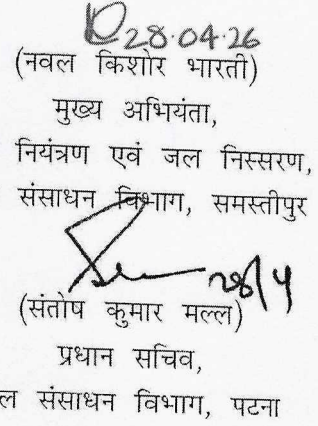 28.04.26
(नवल किशोर भारती)
मुख्य अभियंता,
नियंत्रण एवं जल निस्सरण,
संसाधन विभाग, समस्तीपुर
28/4
(संतोष कुमार मल्ल)
प्रधान सचिव,
ल संसाधन विभाग, पटना